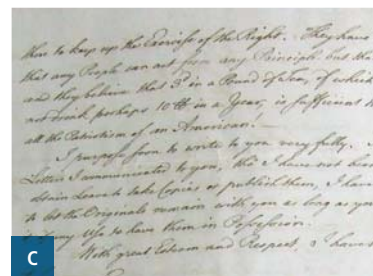 than to keep up the Exercise of the Right. They have
that any People can act from any Principle but tha
and they believe that 3d in a Pound of Tea, of which
not drink perhaps 10 lb in a Year, is sufficient t
all the Patriotism of an American!
I purpose soon to write to you very fully.
Letters I communicated to you, tho' I have not been
obtain Leave to take Copies or publish them, I have
to let the Originals remain with you as long as you
of any Use to have them in Possession.
With great Esteem and Respect, I have
C